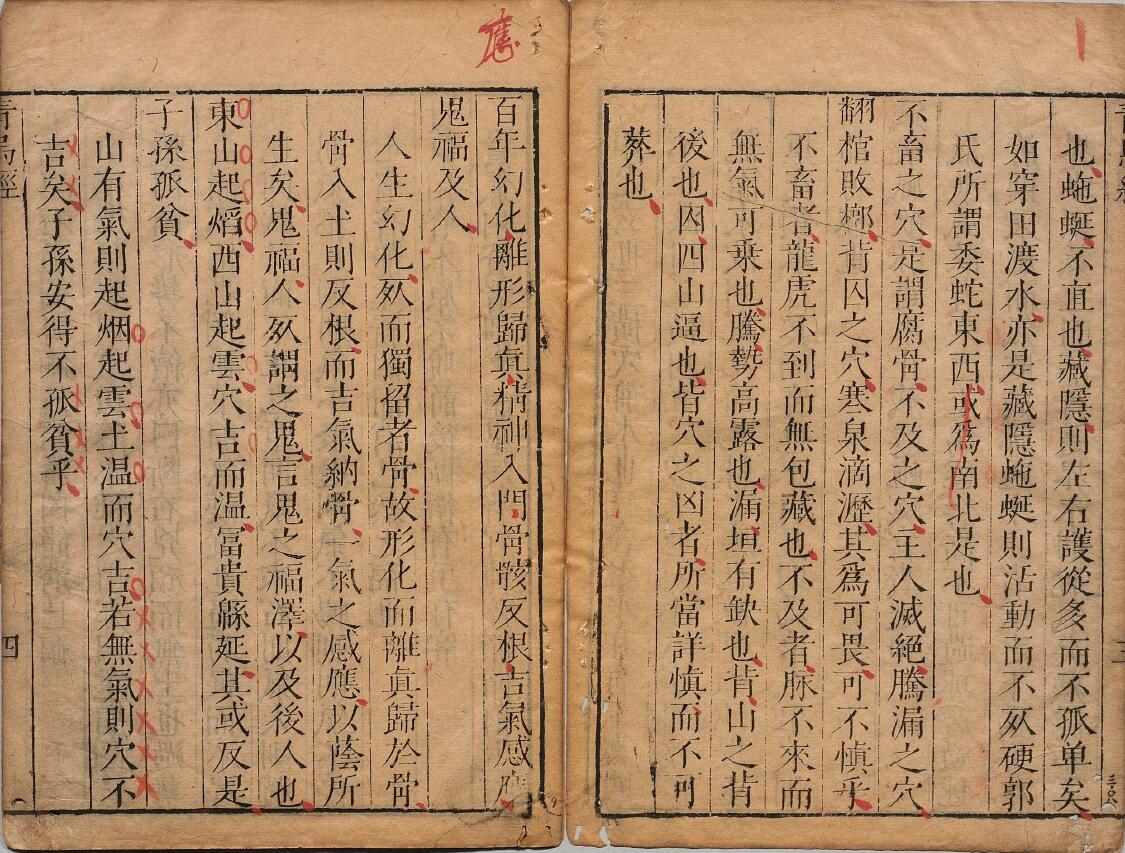 也虵蜒不直也藏隱則左右護從多而不孤单矣
如穿田渡水亦是藏隱虵蜒則活動而不㱔硬郭
氏所謂委蛇東西或為南北是也
不畜之穴是謂腐骨不及之穴主人滅絕騰漏之穴
翻棺敗槨背囚之穴寒泉滴瀝其為可畏可不慎乎
不畜者龍虎不到而無包藏也不及者脉不來而
無氣可乗也騰勢高露也漏垣有缺也背山之背
後也囚四山逼也皆穴之凶者所當詳慎而不可
葬也
應
百年幻化離形歸真精神入門骨骸反根吉氣感應
鬼福及人
人生幻化㱔而獨留者骨故形化而離真歸於骨
骨入土則反根而吉氣納骨一氣之感應以蔭所
生矣鬼福人㱔謂之鬼言鬼之福澤以及後人也
東山起熖西山起雲穴吉而温冨貴緜延其或反是
子孫孤貧
山有氣則起烟起雲土温而穴吉若無氣則穴不
吉矣子孫安得不孤貧乎
青烏經
四